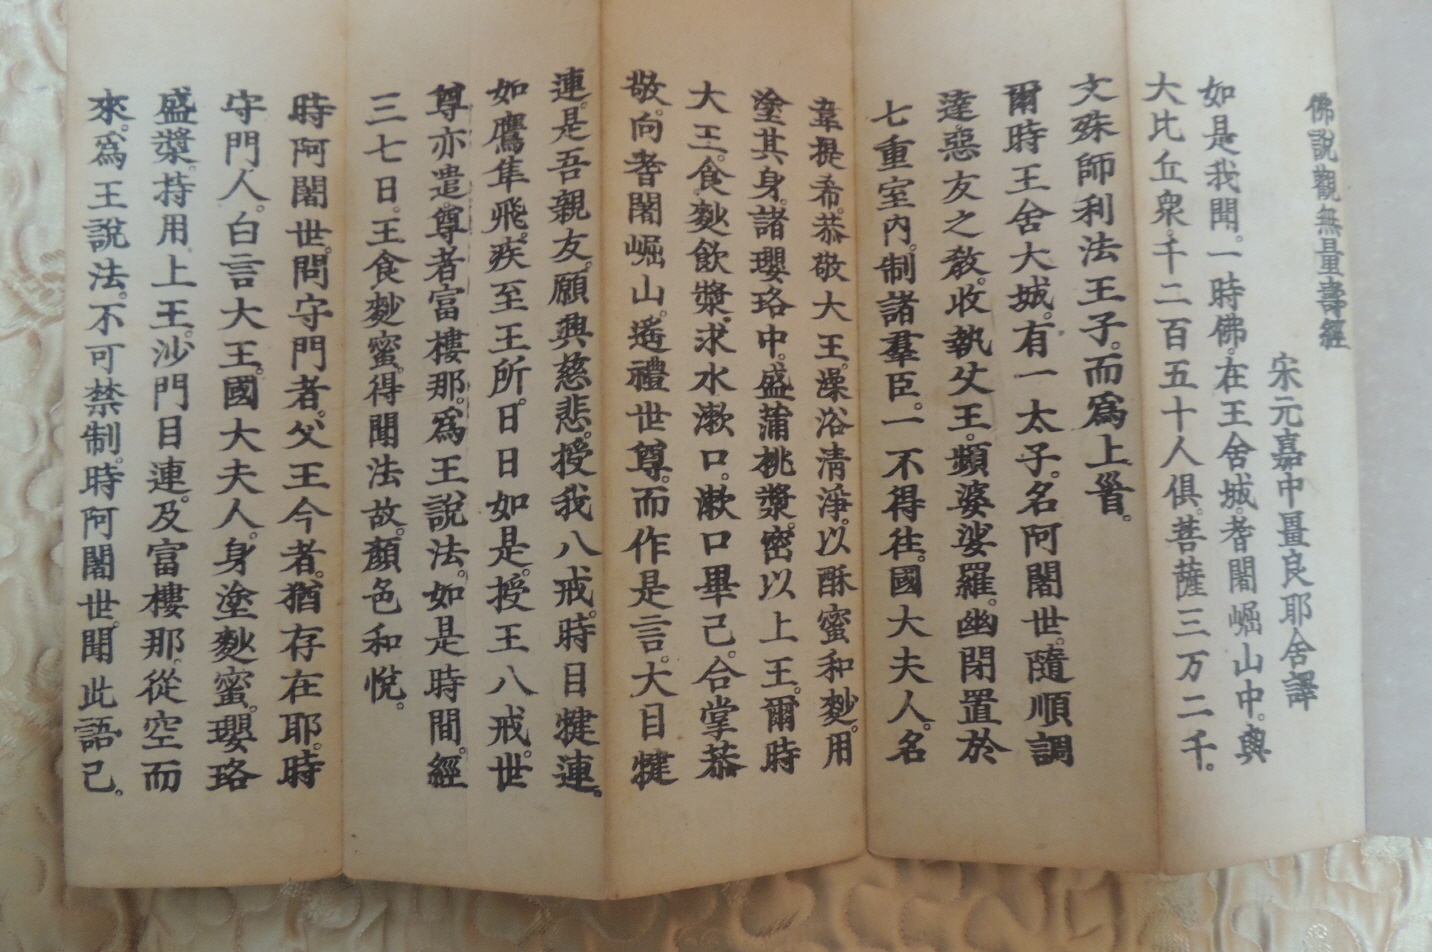 佛說觀無量壽經
宋元嘉中畺良耶舍譯
如是我聞。一時佛。在王舍城。耆闍崛山中。與
大比丘衆。千二百五十人俱。菩薩三万二千。
文殊師利法王子。而爲上首。
爾時王舍大城。有一太子。名阿闍世。隨順調
達。惡友之教。收執父王。頻婆娑羅。幽閉置於
七重室內。制諸羣臣。一不得往。國大夫人。名
韋提希。恭敬大王。澡浴清淨。以酥蜜和麨。用
塗其身。諸瓔珞中。盛蒲桃漿。密以上王。爾時
大王。食麨飲漿。求水漱口。漱口畢已。合掌恭
敬。向耆闍崛山。遙禮世尊。而作是言。大目犍
連。是吾親友。願興慈悲。授我八戒。時目犍連。
如鷹隼飛。疾至王所。日日如是。授王八戒。世
尊亦遣。尊者富樓那。爲王說法。如是時間。經
三七日。王食麨蜜。得聞法故。顏色和悅。
時阿闍世。問守門者。父王今者。猶存在耶。時
守門人。白言大王。國大夫人。身塗麨蜜。瓔珞
盛漿。持用上王。沙門目連。及富樓那。從空而
來。爲王說法。不可禁制。時阿闍世。聞此語已。